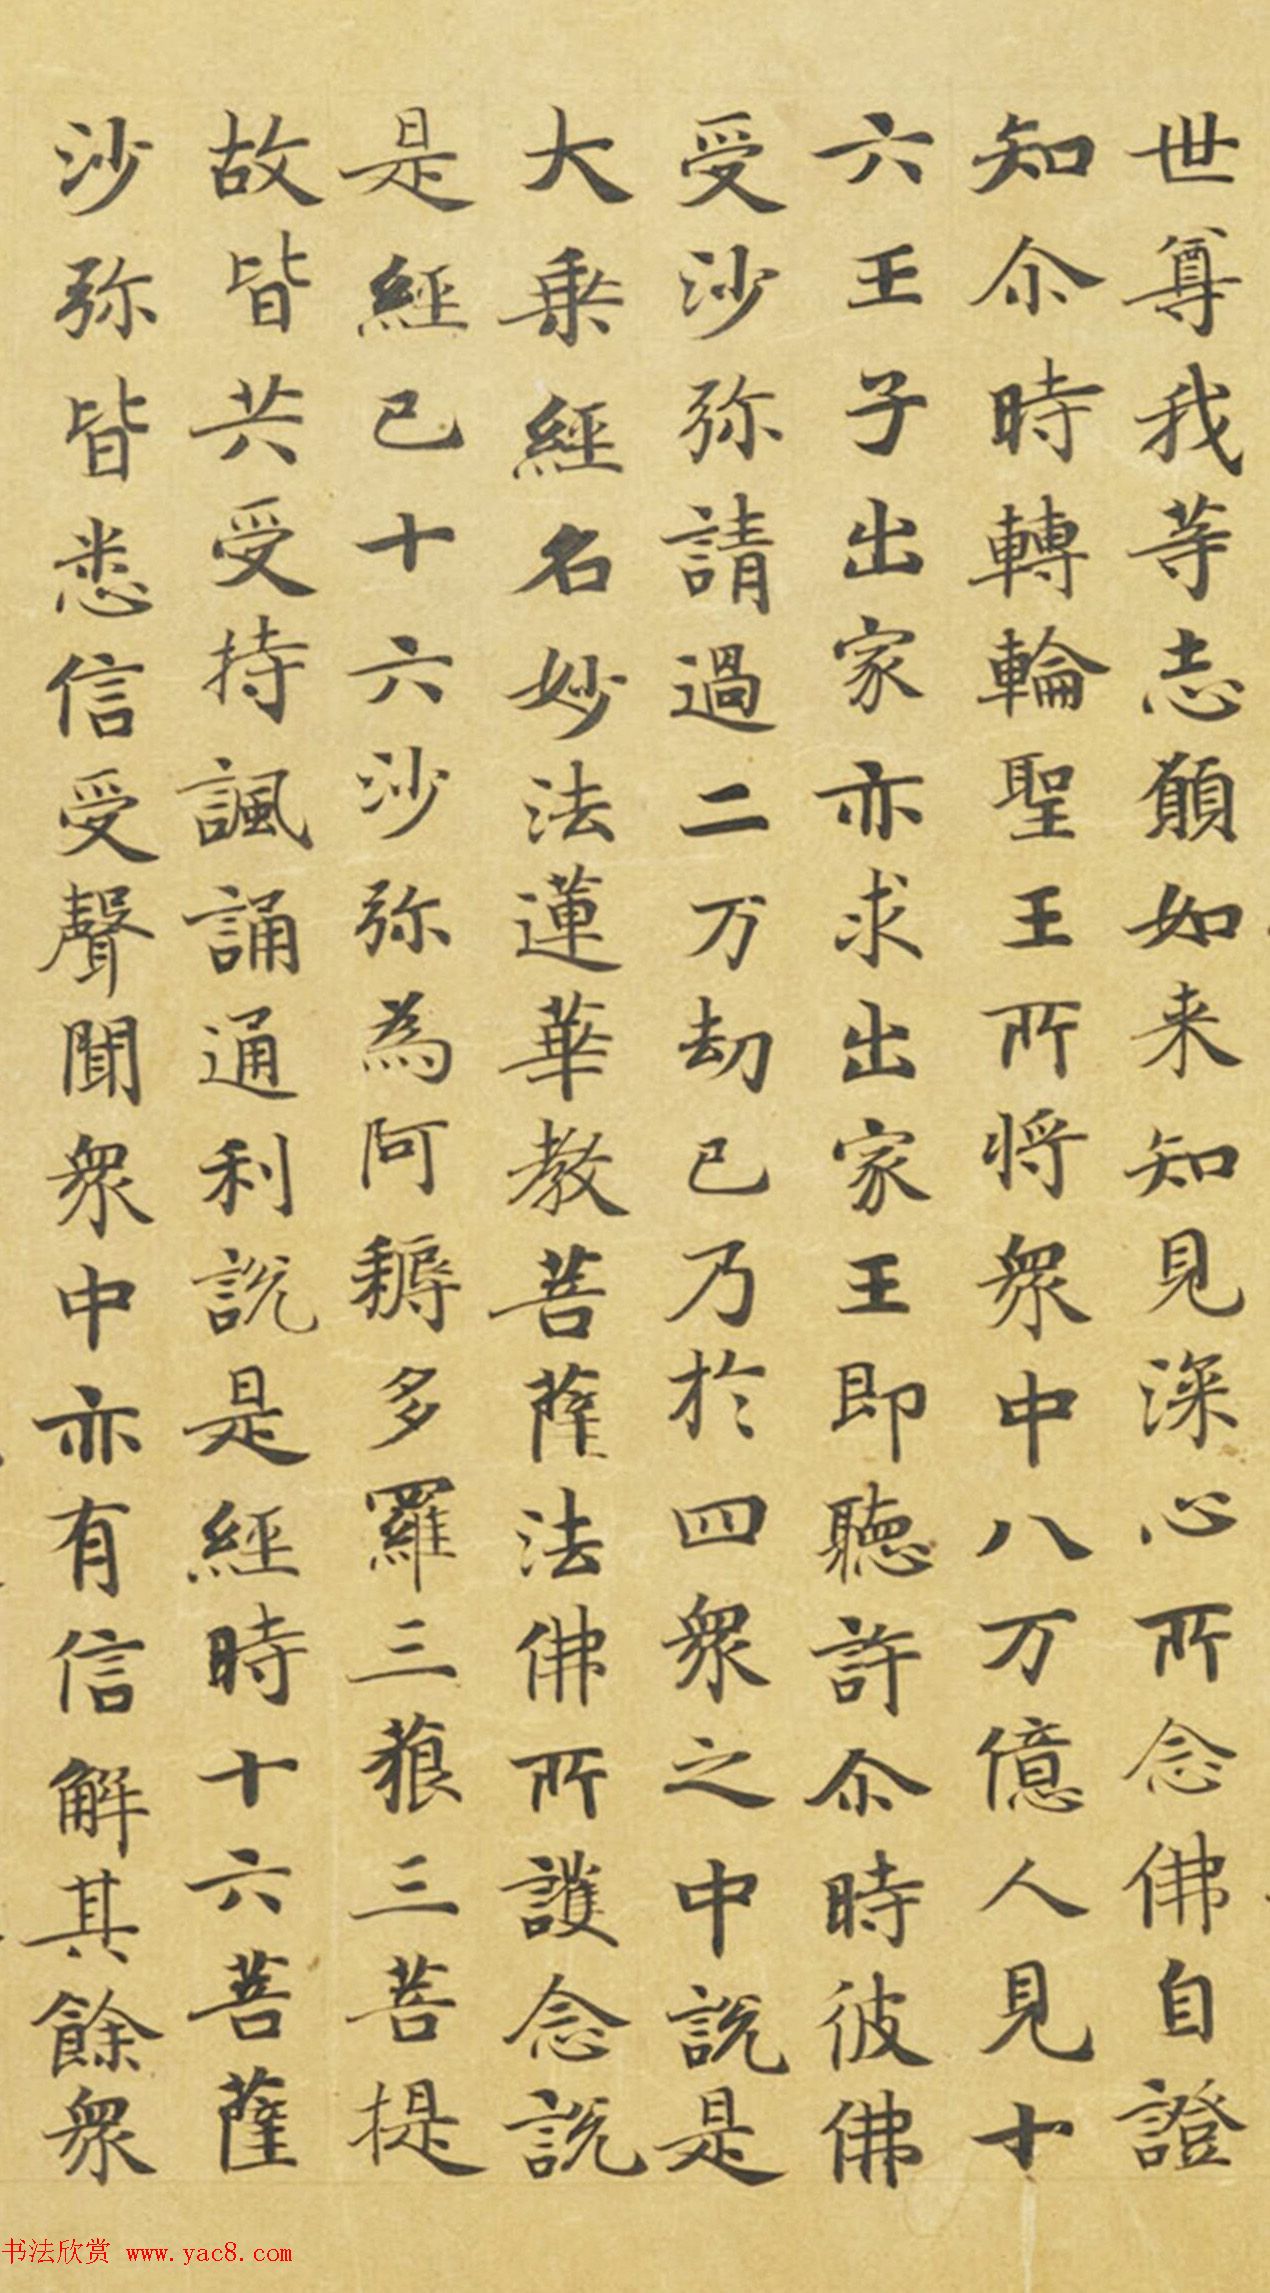 世尊我等志願如来知見深心所念佛自證
知尒時轉輪聖王所将衆中八万億人見十
六王子出家亦求出家王即聽許尒時彼佛
受沙弥請過二万劫已乃於四衆之中說是
大乗經名妙法蓮華教菩薩法佛所護念說
是經已十六沙弥為阿耨多羅三藐三菩提
故皆共受持諷誦通利說是經時十六菩薩
沙弥皆悉信受聲聞衆中亦有信解其餘衆
书法欣赏 www.yac8.com